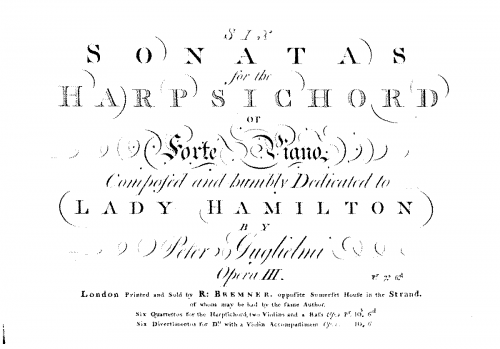 SIX
SONATAS
for the
HARPSICHORD
or
Forte Piano,
Composed and humbly Dedicated to
LADY HAMILTON
BY
Peter Guglielmi
Opera III.
Pr. 7s. 6d.
London Printed and Sold by R: BREMNER, opposite Somerset House in the Strand,
of whom may be had by the same Author.
Six Quartettos for the Harpsichord, two Violins and a Bass Op. 1 Pr. 10s, 6d
Six Divertimentos for Do. with a Violin Accompaniment Op. 10, 6